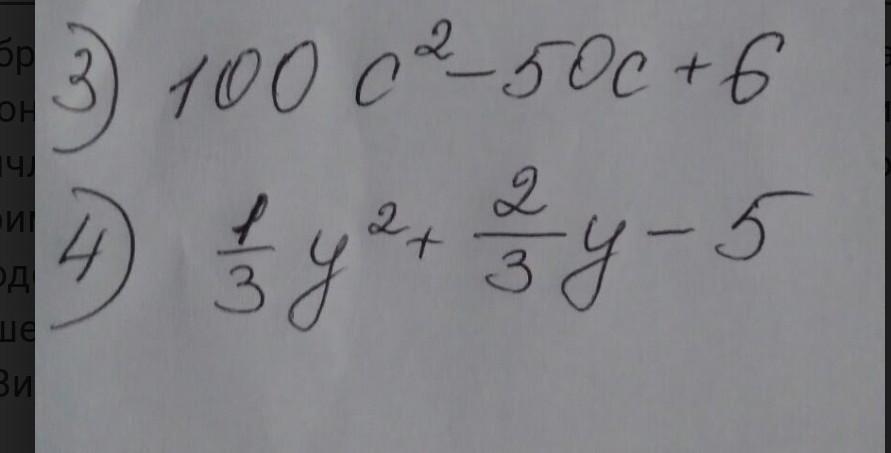 3) 100 c² - 50c + 6
4) 1/3 y² + 2/3 y - 5